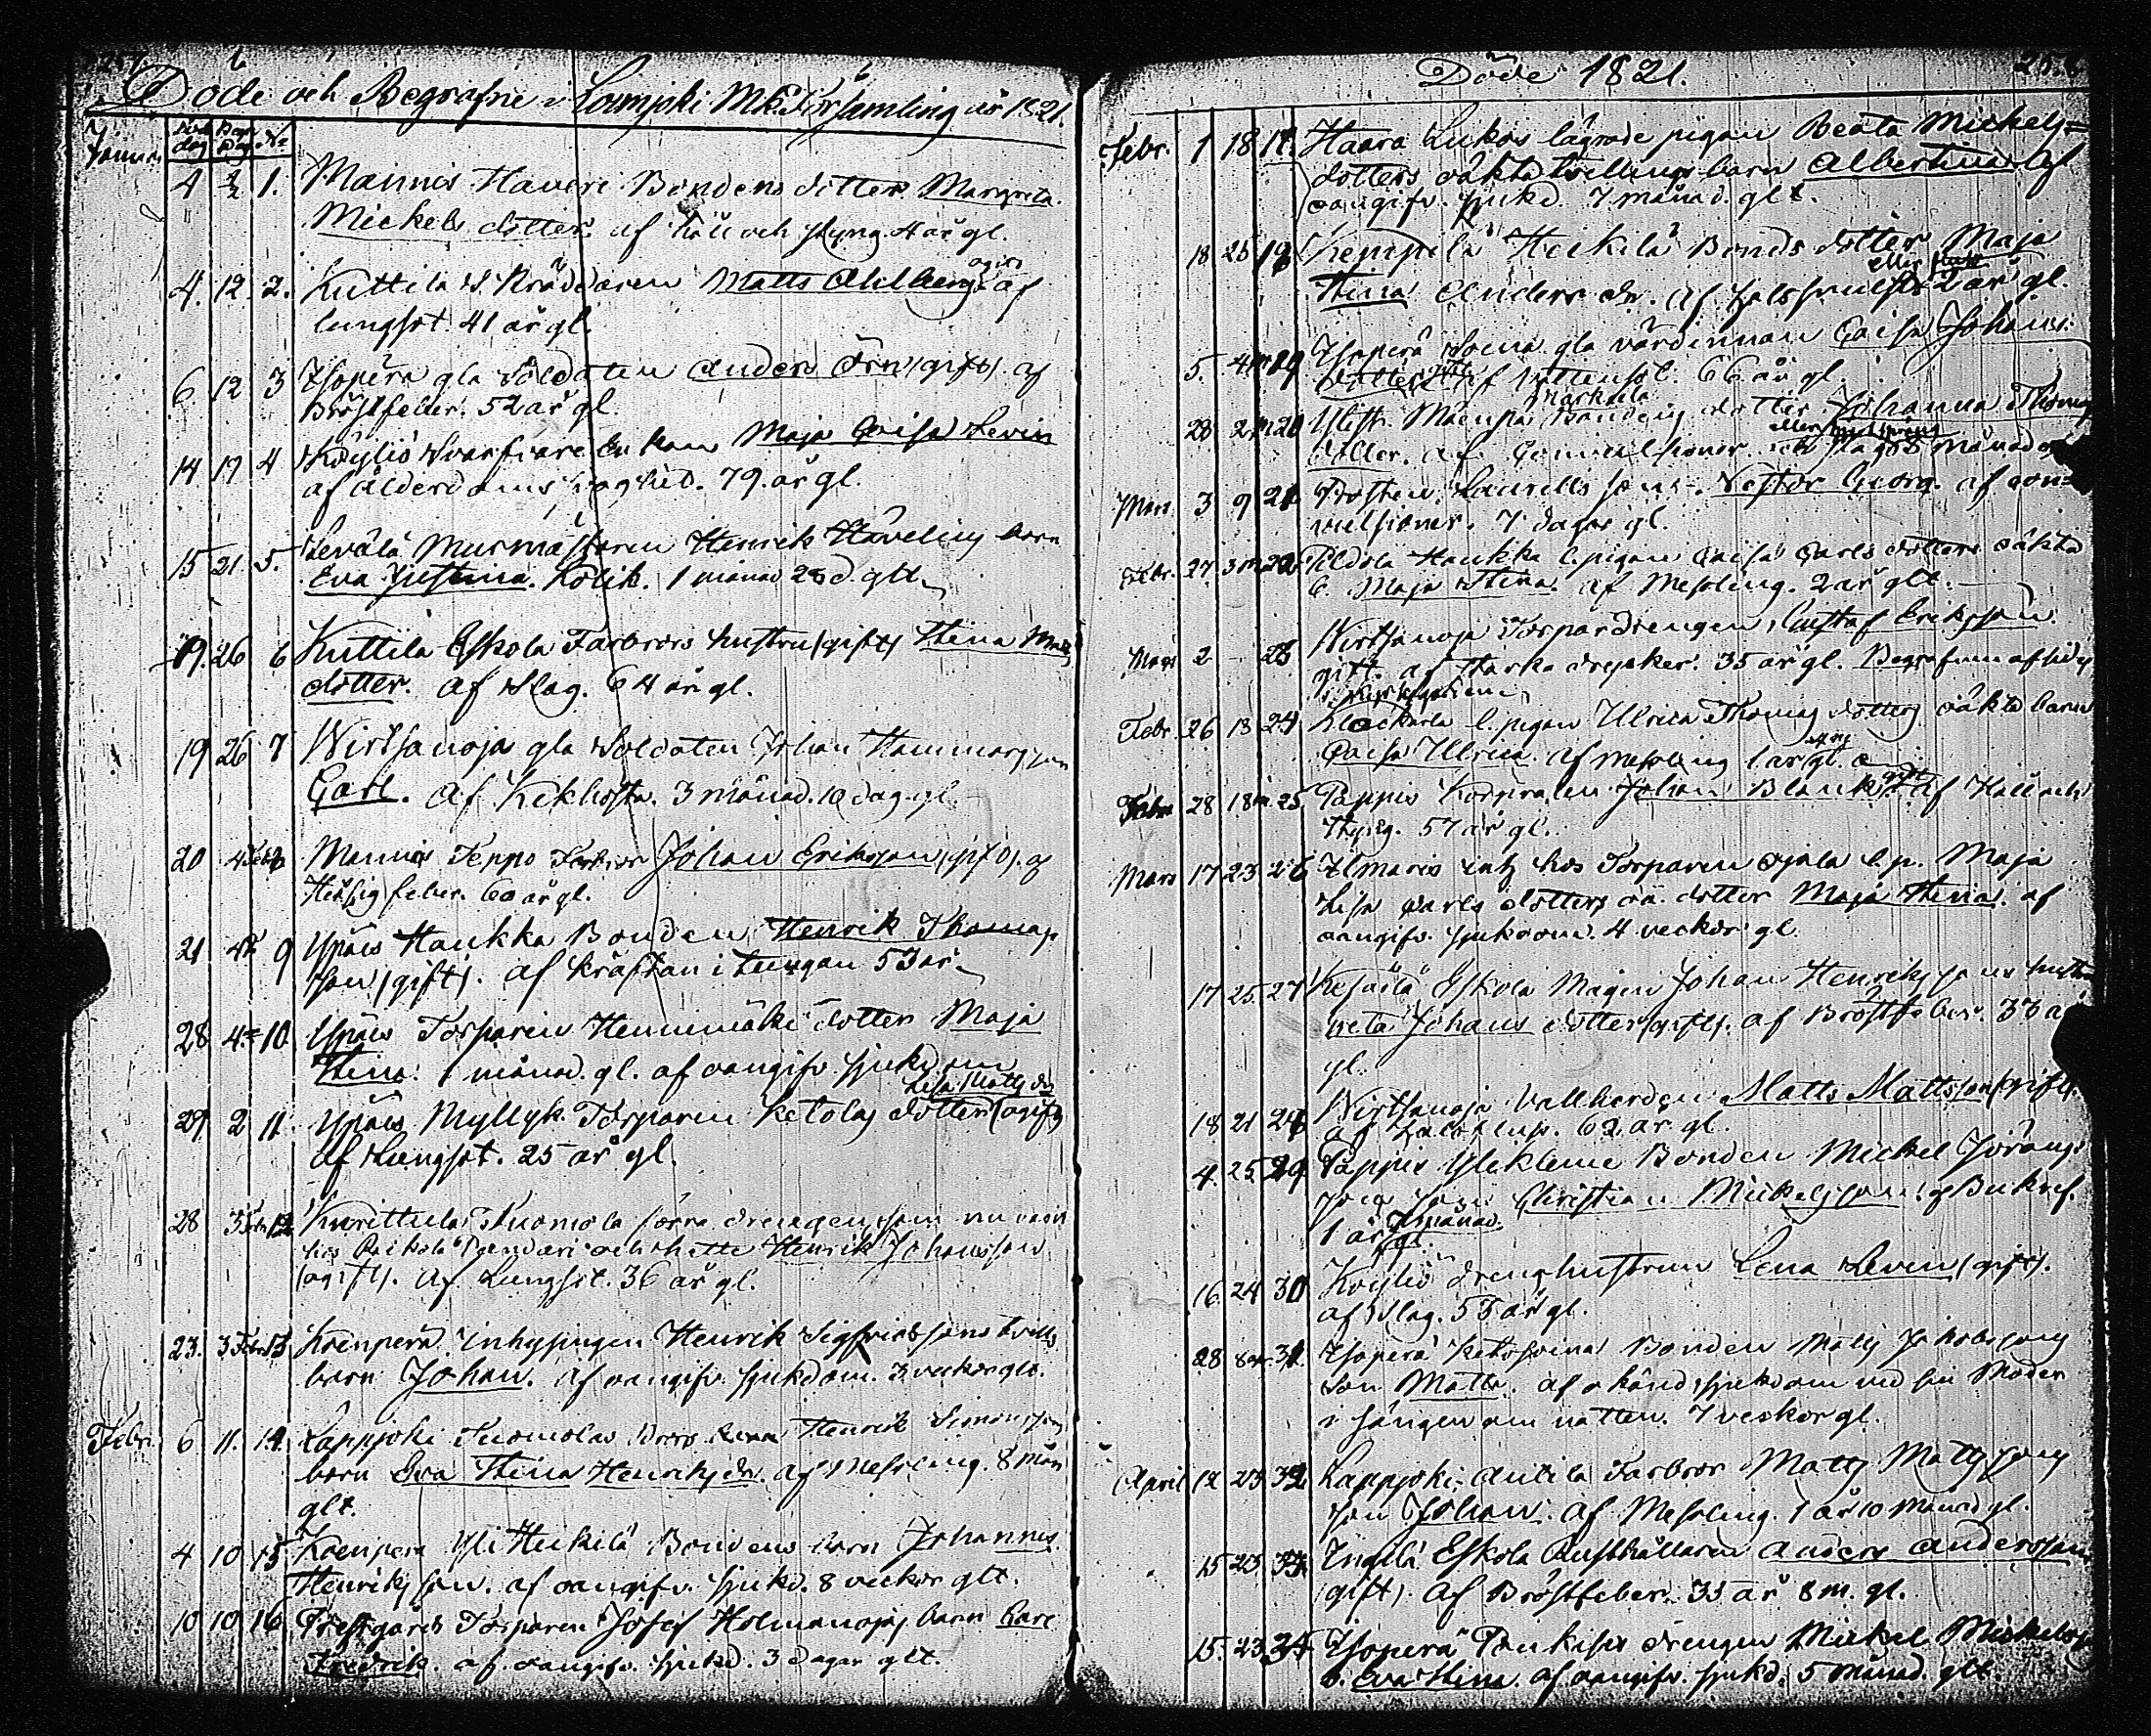 Döde och Begrafne i Loimjoki M.K. Församling år 1821.
Januar.
Död dag Begr. Dag No
4 1. Mannis Haveri Bondens dotter Margreta
Mickels dotter. af håll och styng. 4 år gl.
4. 12. 2. Kuttila Skräddaren Matts Ahlberg ogift af
lungsot 41 år gl.
6 12 3 Isoperä gla Soldaten Anders Örn (gift) af
Bröstfeber. 52 år gl.
14 17 4 Köyliö Svarfvare Enkan Maja Caisa Levin
af ålderdoms svaghet. 79. år gl.
15 21. 5. Levälä Murmästaren Henrik Hävelins barn
Eva Justina. Kolik. 1 månad 28 d. glt
19. 26 6 Kuttila Eskola Farbrors hustru (gift) Stina Matts
dotter. af Slag. 64 år gl.
19 26 7 Wirtsanoja gla Soldaten Johan Hammars son
Carl. af Kikhosta. 3 månad. 10 dag. gl.
20 4 Feb. 8 Mannis Seppo Farbror Johan Eriksson (gift). af
Hetsig feber. 60 år gl.
21 4 9 Ypäis Haukka Bonden Henrik Thomas
son (gift). af kräftan i tungan 53 år
28 4 10 Ypäis Torparen Hennimäki dotter Maja
Stina. 1 månad. gl. af oangifv. sjukdom
Lisa Matts dr
29 2 11. Ypäis Myllyk. Torparen Ketolas dotter (ogift)
af Lungsot. 25 år gl.
28 3 Febr. 12 Kurittula Tuomola förra drengen, som nu varit
hos och hette Henrik Johansson
(ogift). af Lungsot. 36 år gl.
23. 3 Febr. 13 Krenperä inhysingen Henrik Sigfridssons tvill.
barn Johan. af oangifv. sjukdom. 3 veckor glt.
Febr. 6 11. 14. Lappjoki Tuomolas Henrik Simonssons
barn Eva Stina Henriks dr. af Messling. 8 mån
glt.
4 10 15 Koenperä Yli Heikilä Bondens barn Johannes
Henriksson. af oangifv. sjukd. 8 veckor glt.
10 10 16 Prestgårds Torparen Josef Holmanojas barn Carl
Fredrik. af oangifv. sjukd. 3 dagar glt.
Döde 1821.
Febr. 1 18 17. Haara Lukas lägrade pigan Beata Mickels=
dotters oäkta tvillings barn Albertina af
oangifv. sjukd. 7 månad. glt.
18 25 18 Kempilä Heikilä Bonds dotter Maja
Stina Anders dr. af halssvulst 2 år gl.
5. 4 19 Isoperä Soina gla värdinnan Caisa Johans
dotter af Vattensot. 66 år gl
28 2 20 Ylist. Mäenpää Markula Bondens dotter Johanna Thomas
dotter. af Convulsioner eller slag 8 månad
Mars 3 9 21 Prosten Laurells son. Nestor Georg. af con=
vulsioner. 7 dagar gl.
Febr. 27. 3 22 Pildola Haukka l. pigan Caisa Carls dotters oäkta
b. Maja Stina. af Messling. 2 år glt.
Mars 2 23 Wirtsanoja Torpardrengen Gustaf Eriksson.
gift. af starka drycker. 35 år gl. Begrafven afsides
i Kyrkogården
Febr. 26 13 24 Klockarla l. pigan Ulrica Thomas dotters oäkta barn
Caisa Ulrica. af Messling 1 år gl.
Febr. 28 18 25 Pappis Korpralen Johan Blank gift af Håll och
styng. 57 år gl.
Mars 17 23 26 Ilmaris inh. hos Torparen Ojala l.p. Maja
Lisa Carls dotters oä. dotter Maja Stina. af
oangifv. sjukdom. 4 veckor gl.
17 25. 27 Kesäilä Eskola Mågen Johan Henrikssons hustru
Johans dotter (gift). af Bröstfeber. 33 år
gl.
18 21 28 Wirtsanoja Vallherden Matts Mattsson (gift).
62 år gl.
4. 25. 29 Pappis Ylikleme Bonden Mickel Jörans
sons son Christian Mickelsson. af Bukref.
1 år 7 månad. gl.
16. 24 30 Köyliö drenghustrun Lena Levin (gift).
af Slag. 55 år gl.
28 8 31. Isoperä Ketosoina Bonden Matts Jakobssons
son Matts. af okänd sjukdom vid sin Moder
i sängen om natten. 7 veckor gl.
April 12 23 32 Lappjoki Antila Farbror Matts Mattssons
son Johan. af Messling. 1 år 10 månad gl.
15 23 33 Ingilä Eskola Rusthållaren Anders Andersson
(gift). af Bröstfeber. 35 år 8 m. gl.
15. 23. 34 Isoperä drengen Mickel Mickelss.
b. Eva Stina. af oangifv. sjukd. 5 månad. glt.